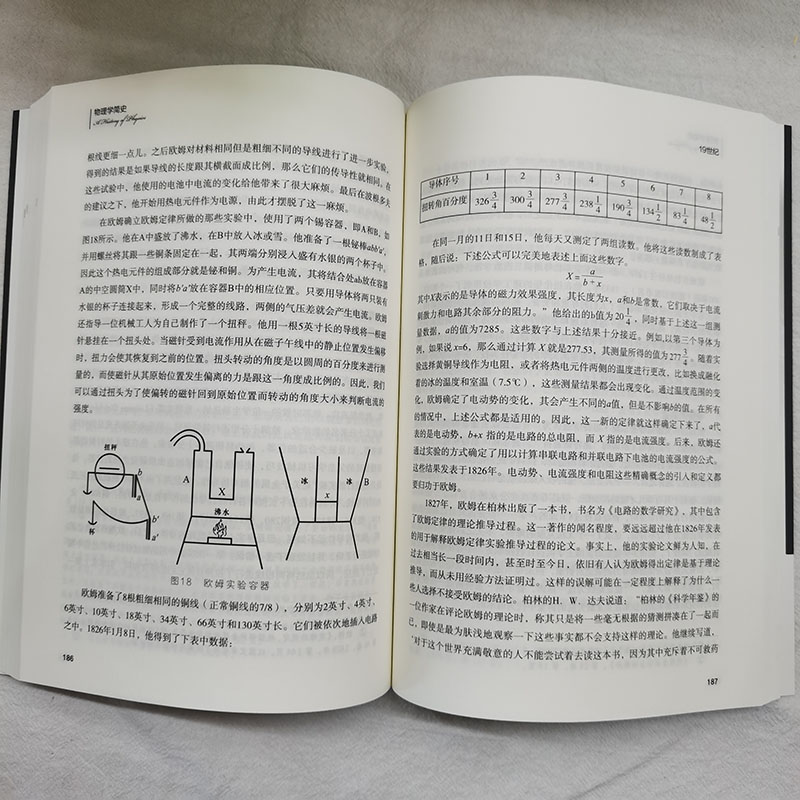 物理学简史
A History of Physics
根线更细一点儿。之后欧姆对材料相同但是粗细不同的导线进行了进一步实验,
得到的结果是如果导线的长度跟其横截面成比例,那么它们的传导性就相同。在
这些试验中,他使用的电池中电流的变化给他带来了很大麻烦。最后在波根多夫
的建议之下,他开始用热电元件作为电源,由此才摆脱了这一麻烦。
在欧姆确立欧姆定律所做的那些实验中,使用了两个锡容器,即A和B,如
图18所示。他在A中盛放了沸水,在B中放入冰或雪。他准备了一根铋棒abb′a′,
并用螺丝将其跟一些铜条固定在一起,其两端分别浸入盛有水银的两个杯子中。
因此这个热电元件的组成部分就是铋和铜。为产生电流,其将结合处ab放在容器
A的中空圆筒X中,同时将b′a′放在容器B中的相应位置。只要用导体将两只装有
水银的杯子连接起来,形成一个完整的线路,两侧的气压差就会产生电流。欧姆
还指导一位机械工人为自己制作了一个扭秤。他用一根5英寸长的导线将一根磁
针悬挂在一个扭头处。当磁针受到电流作用从在磁子午线中的静止位置发生偏移
时,扭力会使其恢复到之前的位置。扭头转动的角度是以圆周的百分度来进行测
量的,而使磁针从其原始位置发生偏离的力是跟这一角度成比例的。因此,我们
可以通过扭头为了使偏转的磁针回到原始位置而转动的角度大小来判断电流的
强度。
扭秤
b
a
杯
b′
a′
A
X
沸水
冰
x
冰
B
图18 欧姆实验容器
欧姆准备了8根粗细相同的铜线(正常铜线的7/8),分别为2英寸、4英寸、
6英寸、10英寸、18英寸、34英寸、66英寸和130英寸长。它们被依次地插入电路
之中。1826年1月8日,他得到了下表中数据:
186
19世纪
导体序号 1 2 3 4 5 6 7 8
扭转角百分度 326 3/4 300 3/4 277 3/4 238 1/4 190 3/4 134 1/2 83 1/4 48 1/2
在同一月的11日和15日,他每天又测定了两组读数。他将这些读数制成了表
格,随后说:下述公式可以完美地表述上面这些数字。
X = a/(b+x)
其中X表示的是导体的磁力效果强度,其长度为x,a和b是常数,它们取决于电流
刺激力和电路其余部分的阻力。”他给出的b值为20 1/4,同时基于上述这一组测
量数据,a的值为7285。这些数字与上述结果十分接近。例如,以第三个导体为
例,如果说x=6,那么通过计算X就是277.53,其测量所得的值为277 3/4。随着实
验选择黄铜导线作为电阻,或者将热电元件两侧的温度进行更改,比如换成融化
着的冰的温度和室温(7.5℃),这些测量结果都会出现变化。通过温度范围的变
化,欧姆确定了电动势的变化,其会产生不同的a值,但是不影响b的值。在所有
的情况中,上述公式都是适用的。因此,这一新的定律就这样确定下来了,a代
表的是电动势,b+x 指的是电路的总电阻,而 X 指的是电流强度。后来,欧姆还
通过实验的方式确定了用以计算串联电路和并联电路下电池的电流强度的公式。
这些结果发表于1826年。电动势、电流强度和电阻这些精确概念的引入和定义都
要归功于欧姆。
1827年,欧姆在柏林出版了一本书,书名为《电路的数学研究》,其中包含
了欧姆定律的理论推导过程。这一著作的闻名程度,要远远超过他在1826年发表
的用于解释欧姆定律实验推导过程的论文。事实上,他的实验论文鲜为人知,在
过去相当长一段时间内,甚至时至今日,依旧有人认为欧姆得出定律是基于理论
推导,而从未用经验方法证明过。这样的误解可能在一定程度上解释了为什么一
些人选择不接受欧姆的结论。柏林的H. W. 达夫说道:“柏林的《科学年鉴》的
一位作家在评论欧姆的理论时,称其只是将一些毫无根据的猜测拼凑在了一起而
已,即使是最为肤浅地观察一下这些事实都不会支持这样的理论。他继续写道,
‘对于这个世界充满敬意的人不能尝试着去读这本书,因为其中充斥着不可救药
187